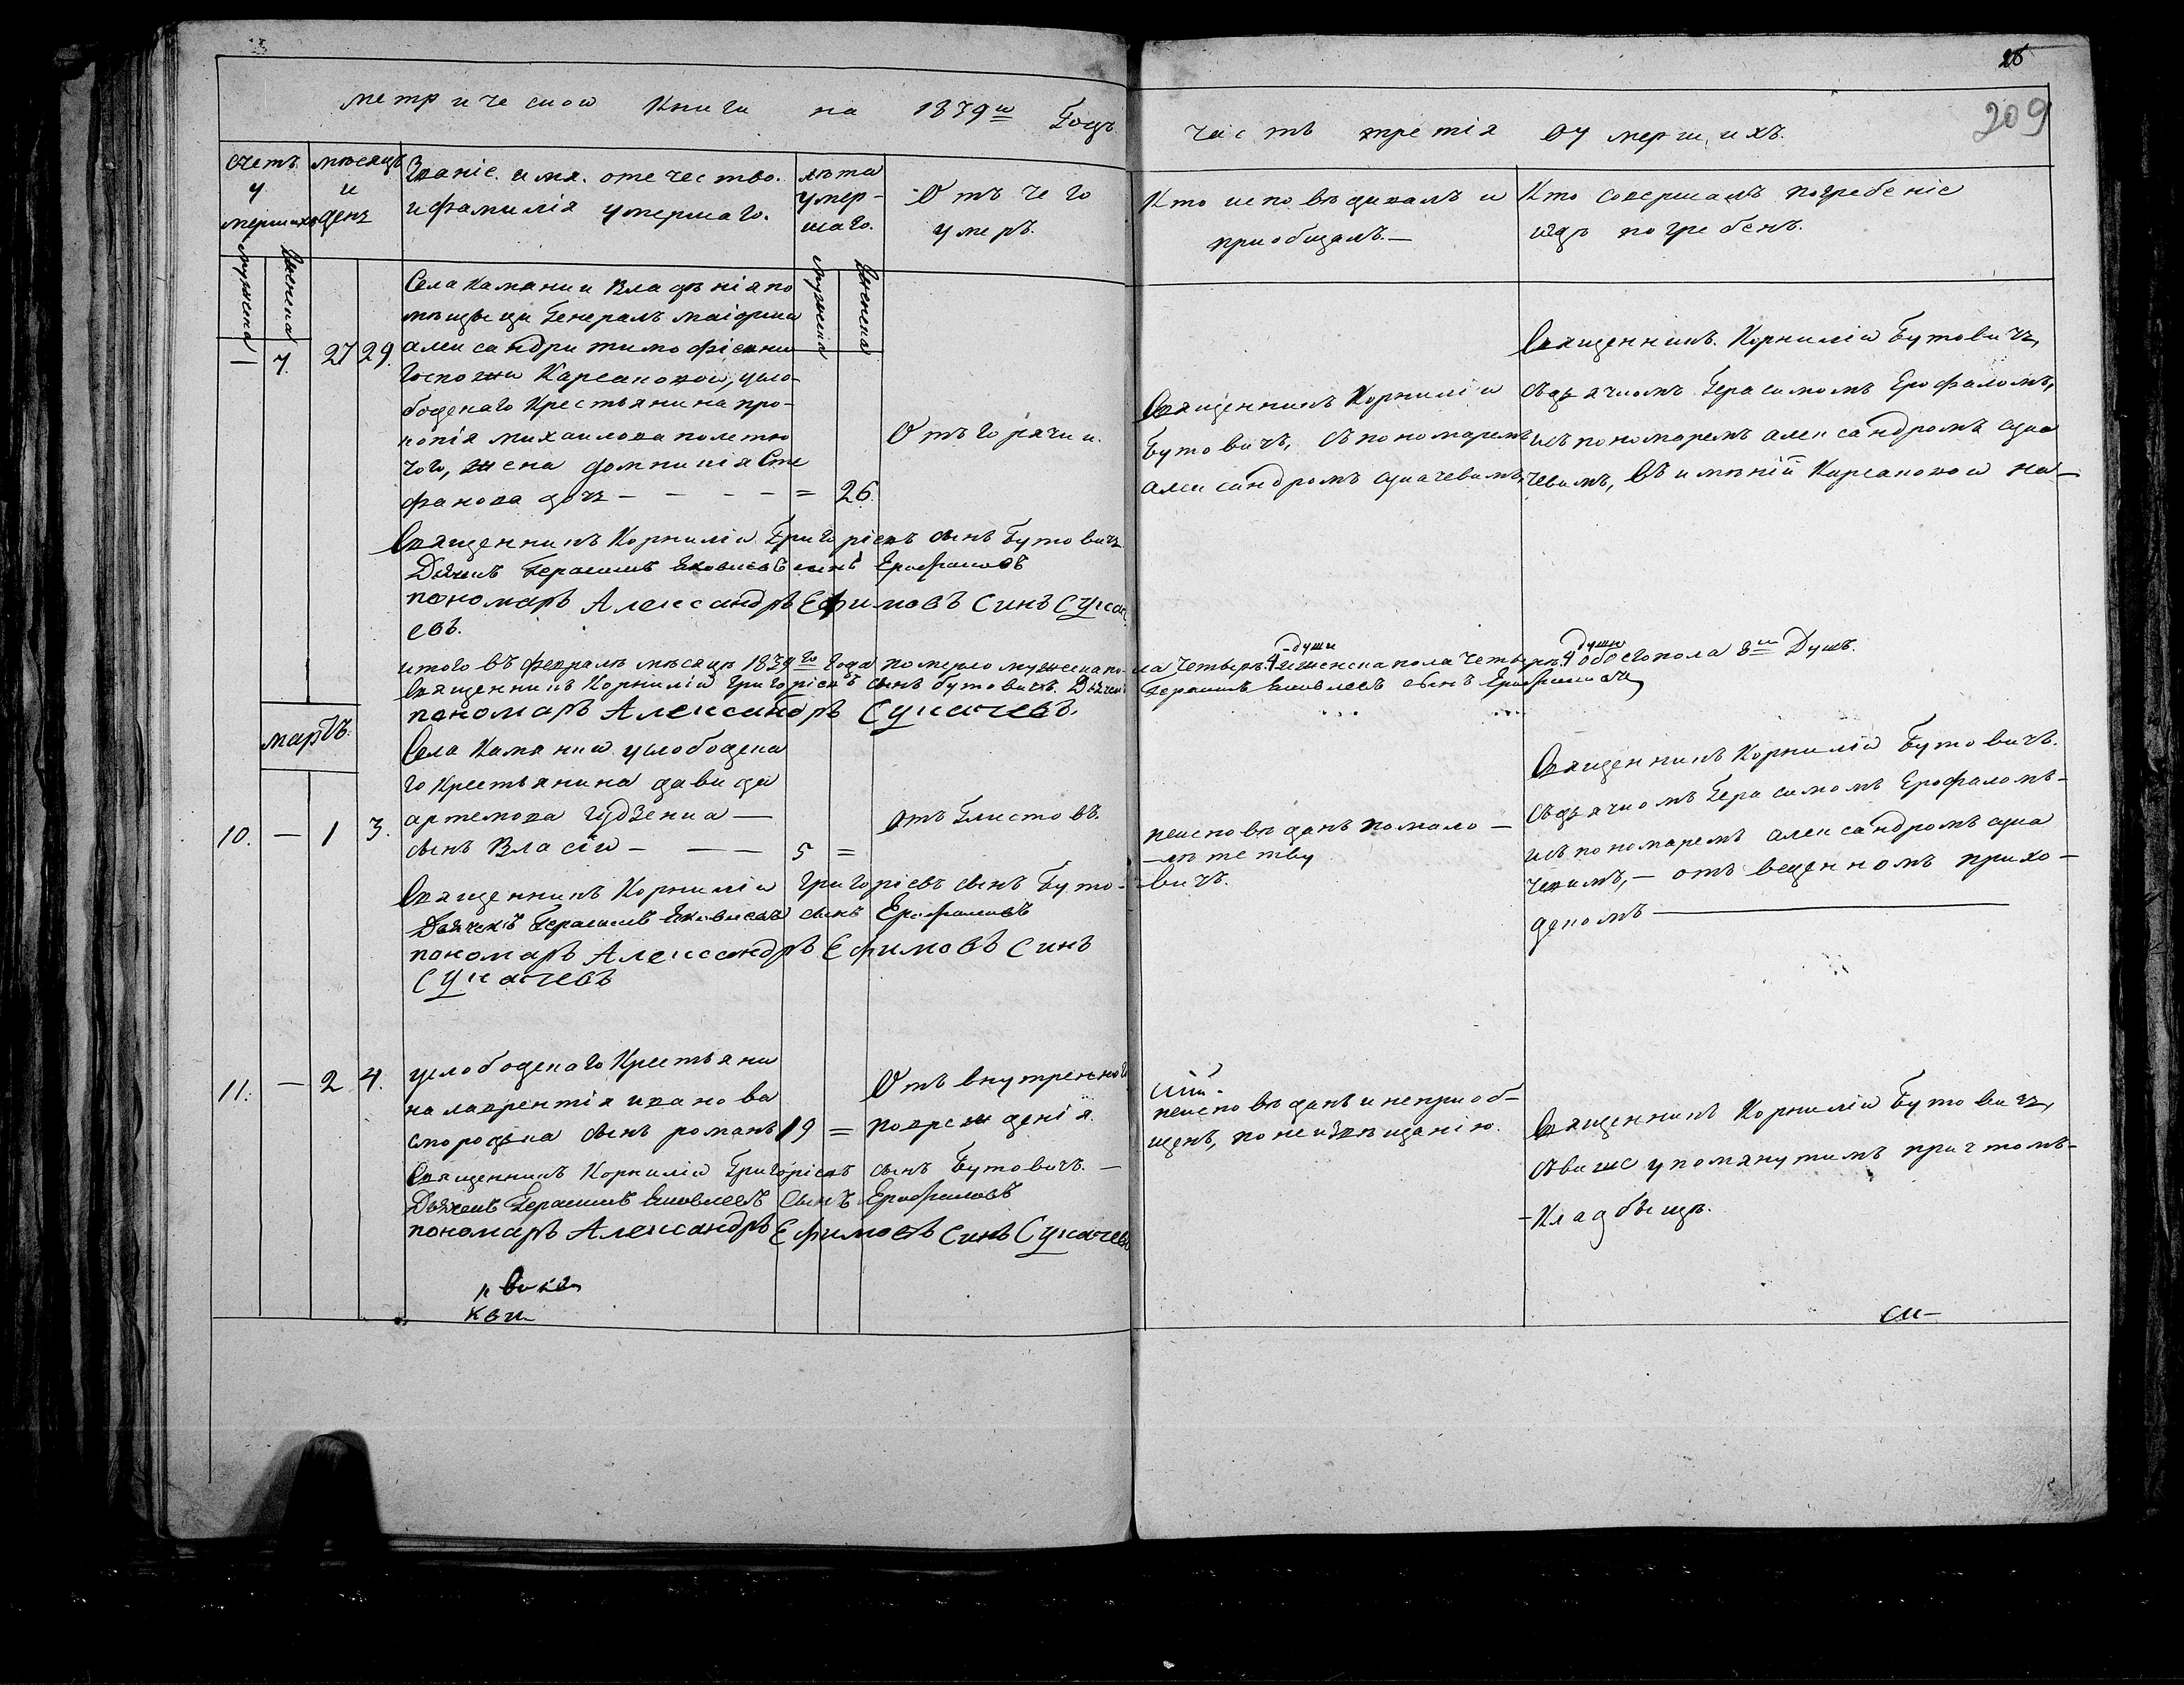 метрической книги на 1839й Годъ
часть третія оумершихъ.
28
209
счетъ умершихъ
мѣсяцъ и день
Званіе. имя. отечество. и фамилія умершаго.
лѣта умер- шаго.
Отъ чего умеръ.
Кто исповѣдивалъ и приобщалъ.—
Кто совершалъ погребеніе и гдѣ погребенъ.
мужеска
женска
мужеска
женска
Села Каманки Владѣнія по
мѣщыци Генералъ маіорши
— 7. 27 29. александри тимофіевни
Госпожи Карсановой, усло-
боденаго Крестьянина про-
копія михаилова полетко
чого, жена домникія Сте
фанова дочъ — — — — = 26.
Отъ горячки.
Священникъ Корнилій
Бутовичъ, съ пономаремъ
александромъ сукачевимъ,
Священникъ. Корнилій Бутовичъ,
съ дячкомъ Герасимомъ Ерофаломъ,
и съ пономаремъ александромъ сука
чевимъ, въ имѣній Карсановой на—
Священникъ Корнилій Григоріевъ сынъ Бутовичъ
Дьячекъ Герасимъ Яковлевъ сынъ Ерофаловъ
пономаръ Александръ Ефимовъ Синъ Сукач
евъ.
итого въ февралѣ мѣсяцѣ 1839го года померло мужеска по-ла четырѣ 4 души и женска пола четырѣ 4 души обоего пола 8м Душъ.
Священникъ Корнилій Григоріевъ сынъ бутовичъ. Дьячекъ Герасимъ Яковлевъ сынъ Ерофаловъ
пономаръ Александръ Сукачевъ.
мартъ.
Села Каманки услободена
го крестьянина давида
артемова Гудзенка —
10. — 1 3. сынъ Власій — — — 5 =
отъ Глистовъ.
неисповѣданъ помало —
—лѣтству
Священникъ Корнилій Бутовичъ.
съ дячкомъ Герасимомъ Ерофаломъ—
и съ пономаремъ александромъ сука
чевимъ, —
деномъ —
Священникъ Корнилій Григоріевъ сынъ Буто-вичъ.
Дьячекъ Герасимъ Яковлевъ сынъ Ерофаловъ
пономаръ Александръ Ефимовъ Синъ
Сукачевъ
услободенаго Крестьяни
11. — 2 4. на лаврентія иванова
смородина сынъ романъ 19 =
Отъ внутренного
поврежденія.
сій
неисповѣданъ и неприоб-
щенъ, по неизвѣщанію.
Священникъ Корнилій Бутовичъ,
съ више упомянутимъ причтомъ—
—Кладбыщѣ.
Священникъ Корнилій Григоріевъ сынъ Бутовичъ.—
Дьячекъ Герасимъ Яковлевъ Сынъ Ерофаловъ
пономаръ Александръ Ефимовъ Синъ Сукачевъ